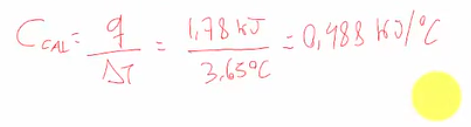 C_CAL = q/ΔT = 1,78 kJ/3,65°C = 0,488 kJ/°C